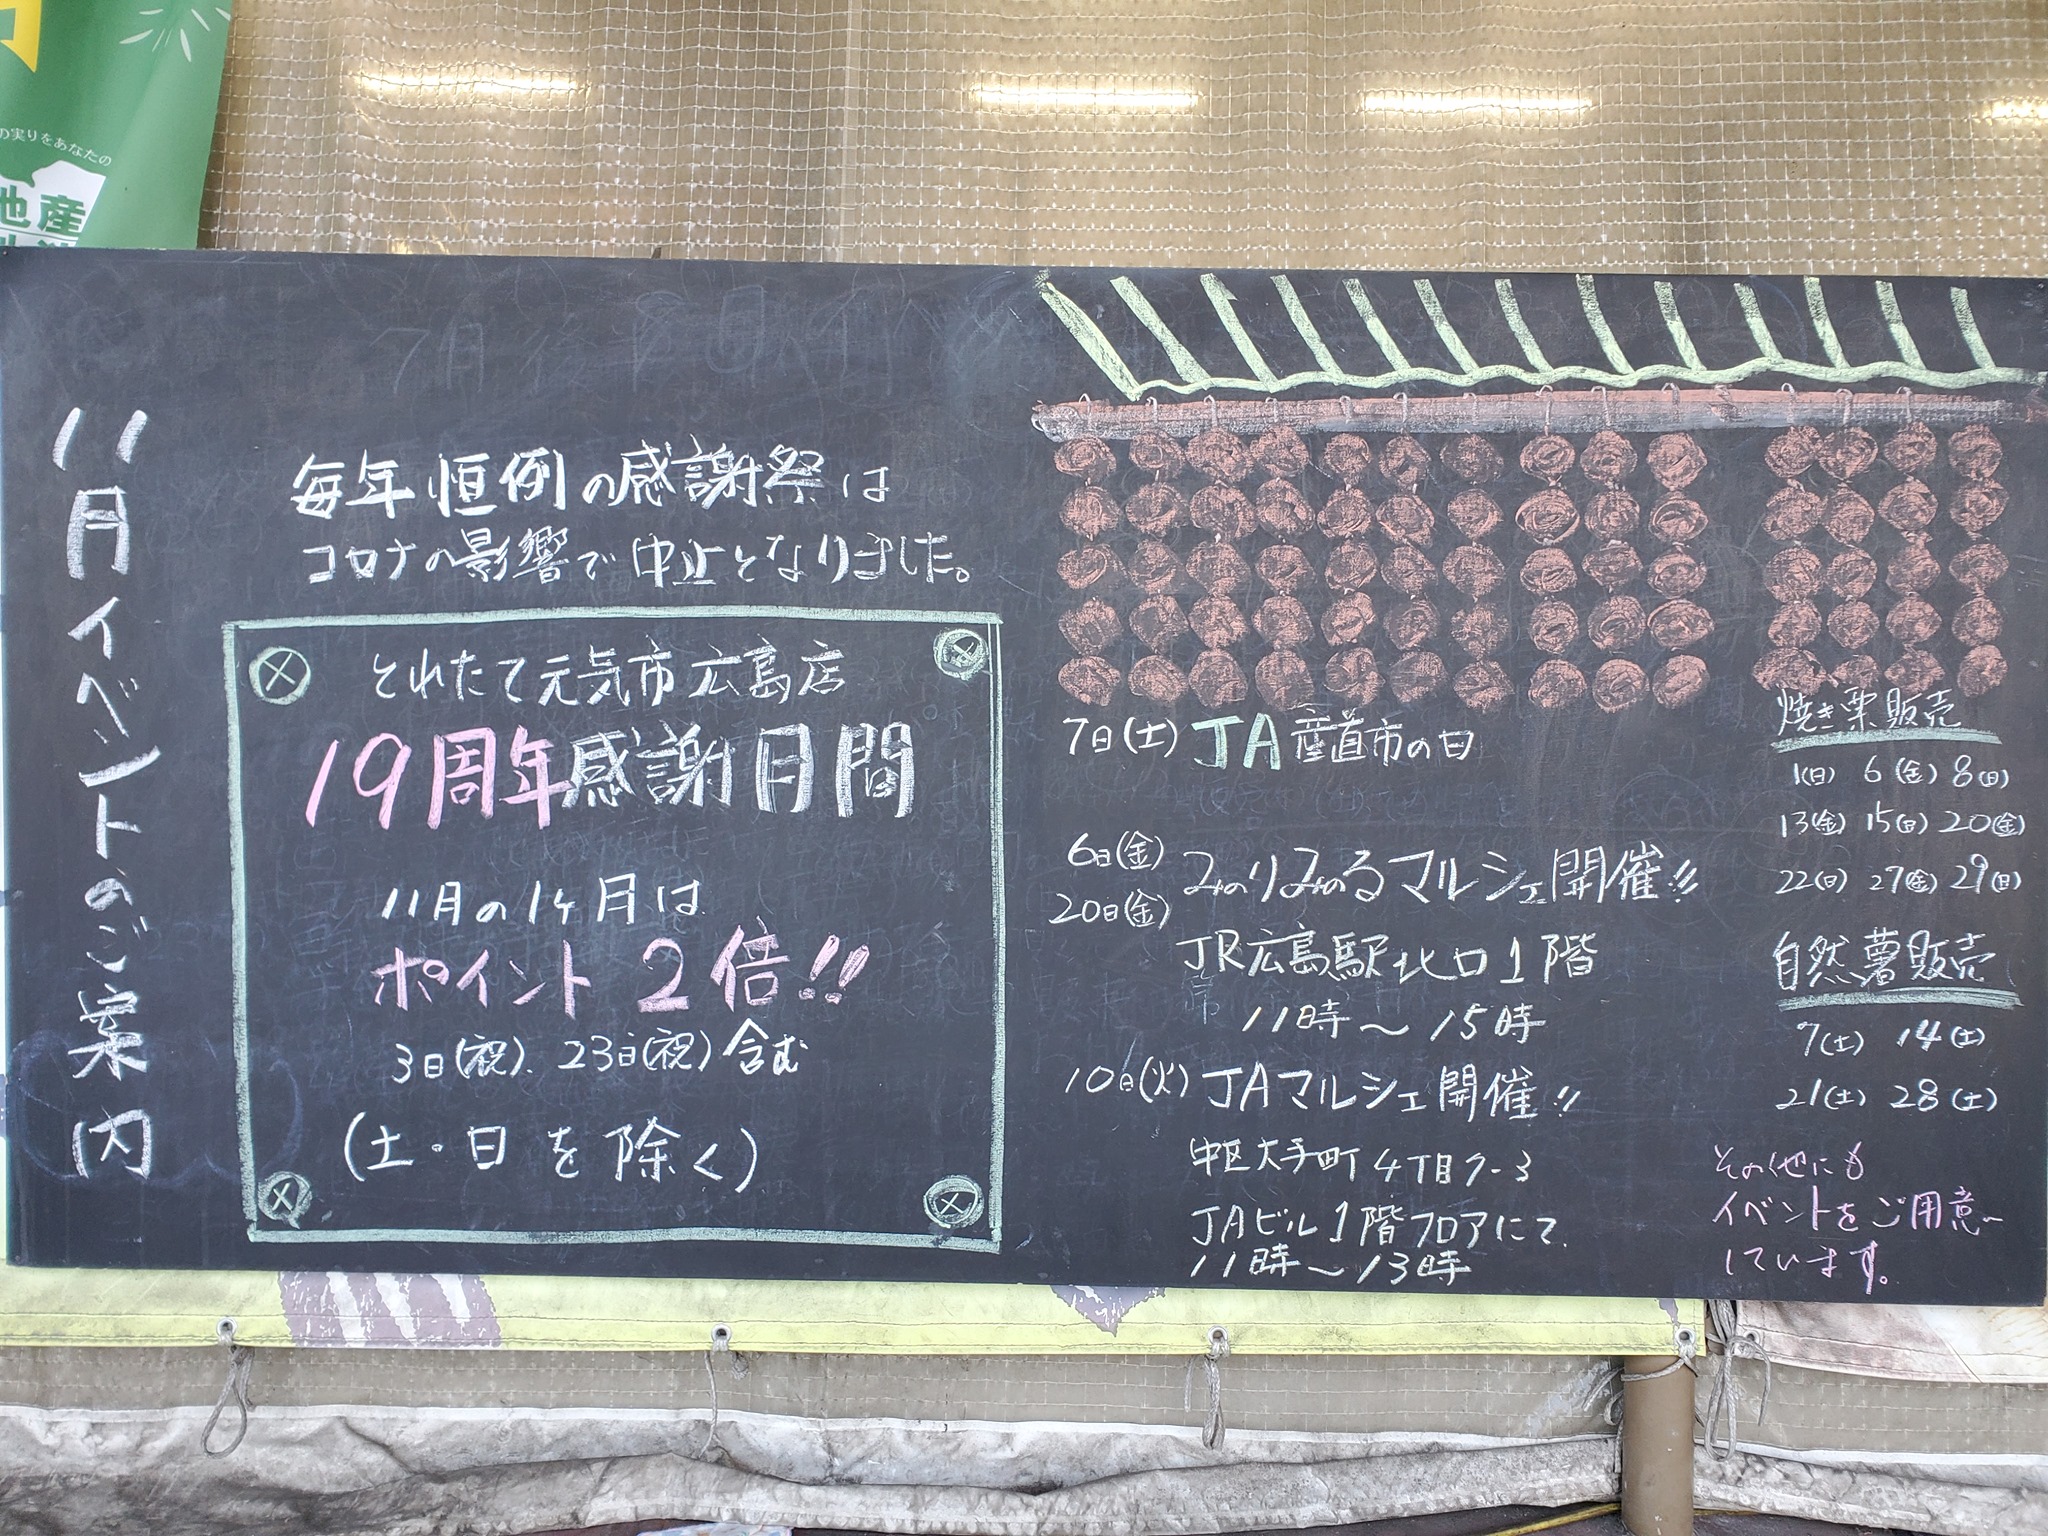 の実りをあなたの
地産
11月イベントのご案内
毎年恒例の感謝祭は
コロナの影響で中止となりました。
とれたて元気市広島店
19周年感謝月間
11月の1ヶ月は
ポイント2倍!!
3日(祝)、23日(祝)含む
(土・日を除く)
7日(土) JA産直市の日
6日(金)
20日(金)
みのりみのるマルシェ開催!!
JR広島駅北口1階
11時〜15時
10日(火) JAマルシェ開催!!
中区大手町4丁目7-3
JAビル1階フロアにて
11時〜13時
焼き栗販売
1(日) 6(金) 8(日)
13(金) 15(日) 20(金)
22(日) 27(金) 29(日)
自然薯販売
7(土) 14(土)
21(土) 28(土)
その他にも
イベントをご用意
しています。